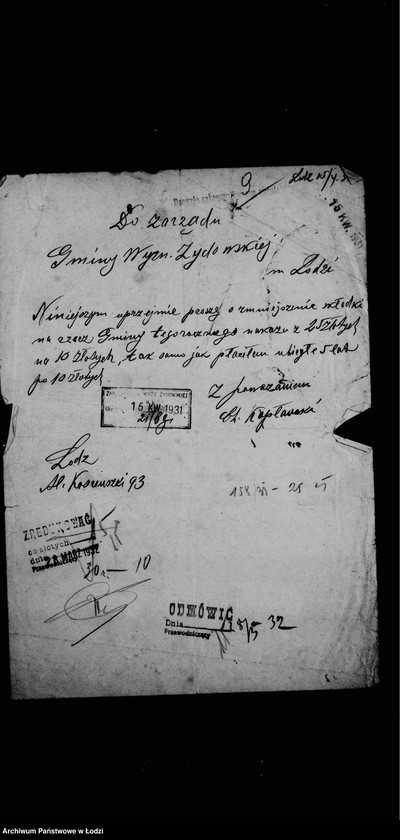 9
Łódź 15/4 31
15 KW. 1931
Do zarządu
Gminy Wyzn. Żydowskiej
w Łodzi
Niniejszym uprzejmie proszę o zmniejszenie składki
na rzecz Gminy tegorocznego nakazu z 25 złotych
na 10 złotych, tak samo jak płaciłem ubiegłe 5 lat
po 10 złotych
Z poważaniem
Ch. Kapłański
15 KW. 1931
Lodz
Al. Kosciuszki 93
158/31 - 25
ZREDUKOWAĆ
do złotych 15
dnia 28 MARZ 1932
Przewodniczący
30 r. - 10
ODMÓWIĆ
Dnia 18/5 32
Przewodniczący
Archiwum Państwowe w Łodzi